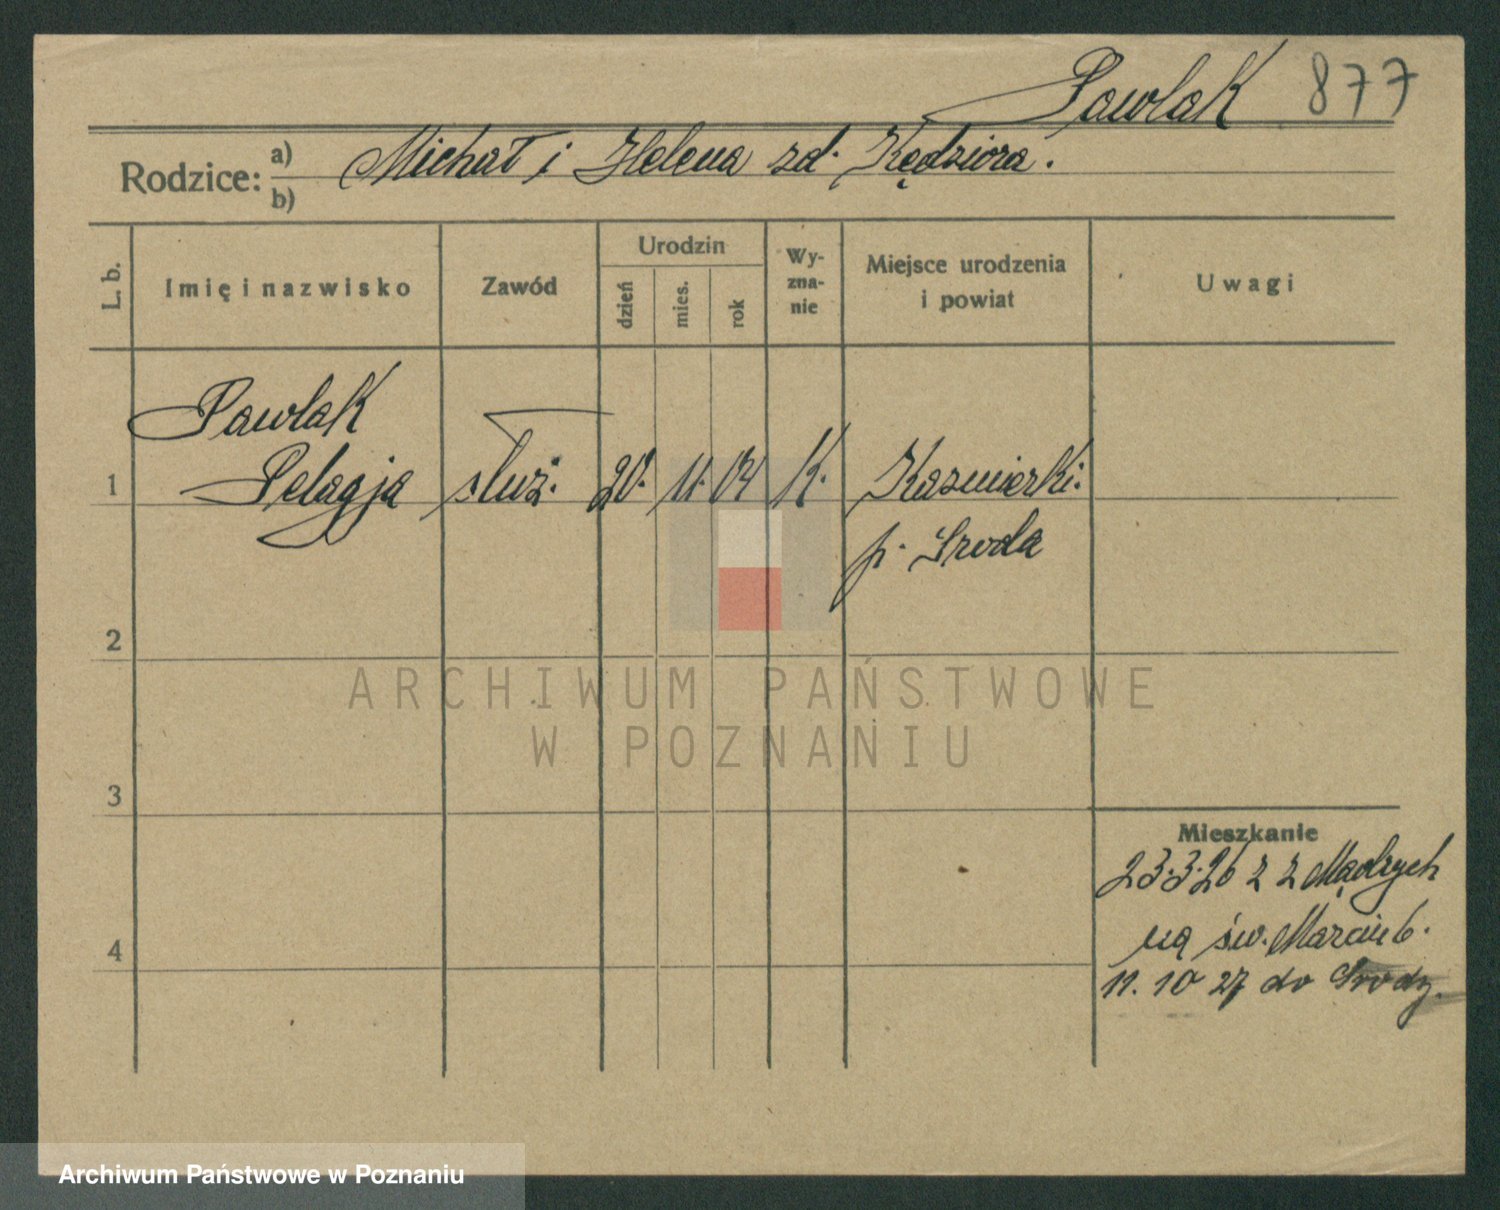 Pawlak 877
Rodzice: a) Michał i Helena zd. Kędziora.
b)
L. b.
Imię i nazwisko
Zawód
Urodzin
dzień
mies.
rok
Wy-
zna-
nie
Miejsce urodzenia
i powiat
Uwagi
Pawlak
1 Pelagja służ. 20. 11. 04 K. Kazmierki.
p. Sroda
2
ARCHIWUM PAŃSTWOWE
W POZNANIU
3
Mieszkanie
23.3.26 z z Mądrych
na św. Marcin 6.
4
11. 10 27 do Srody.
Archiwum Państwowe w Poznaniu